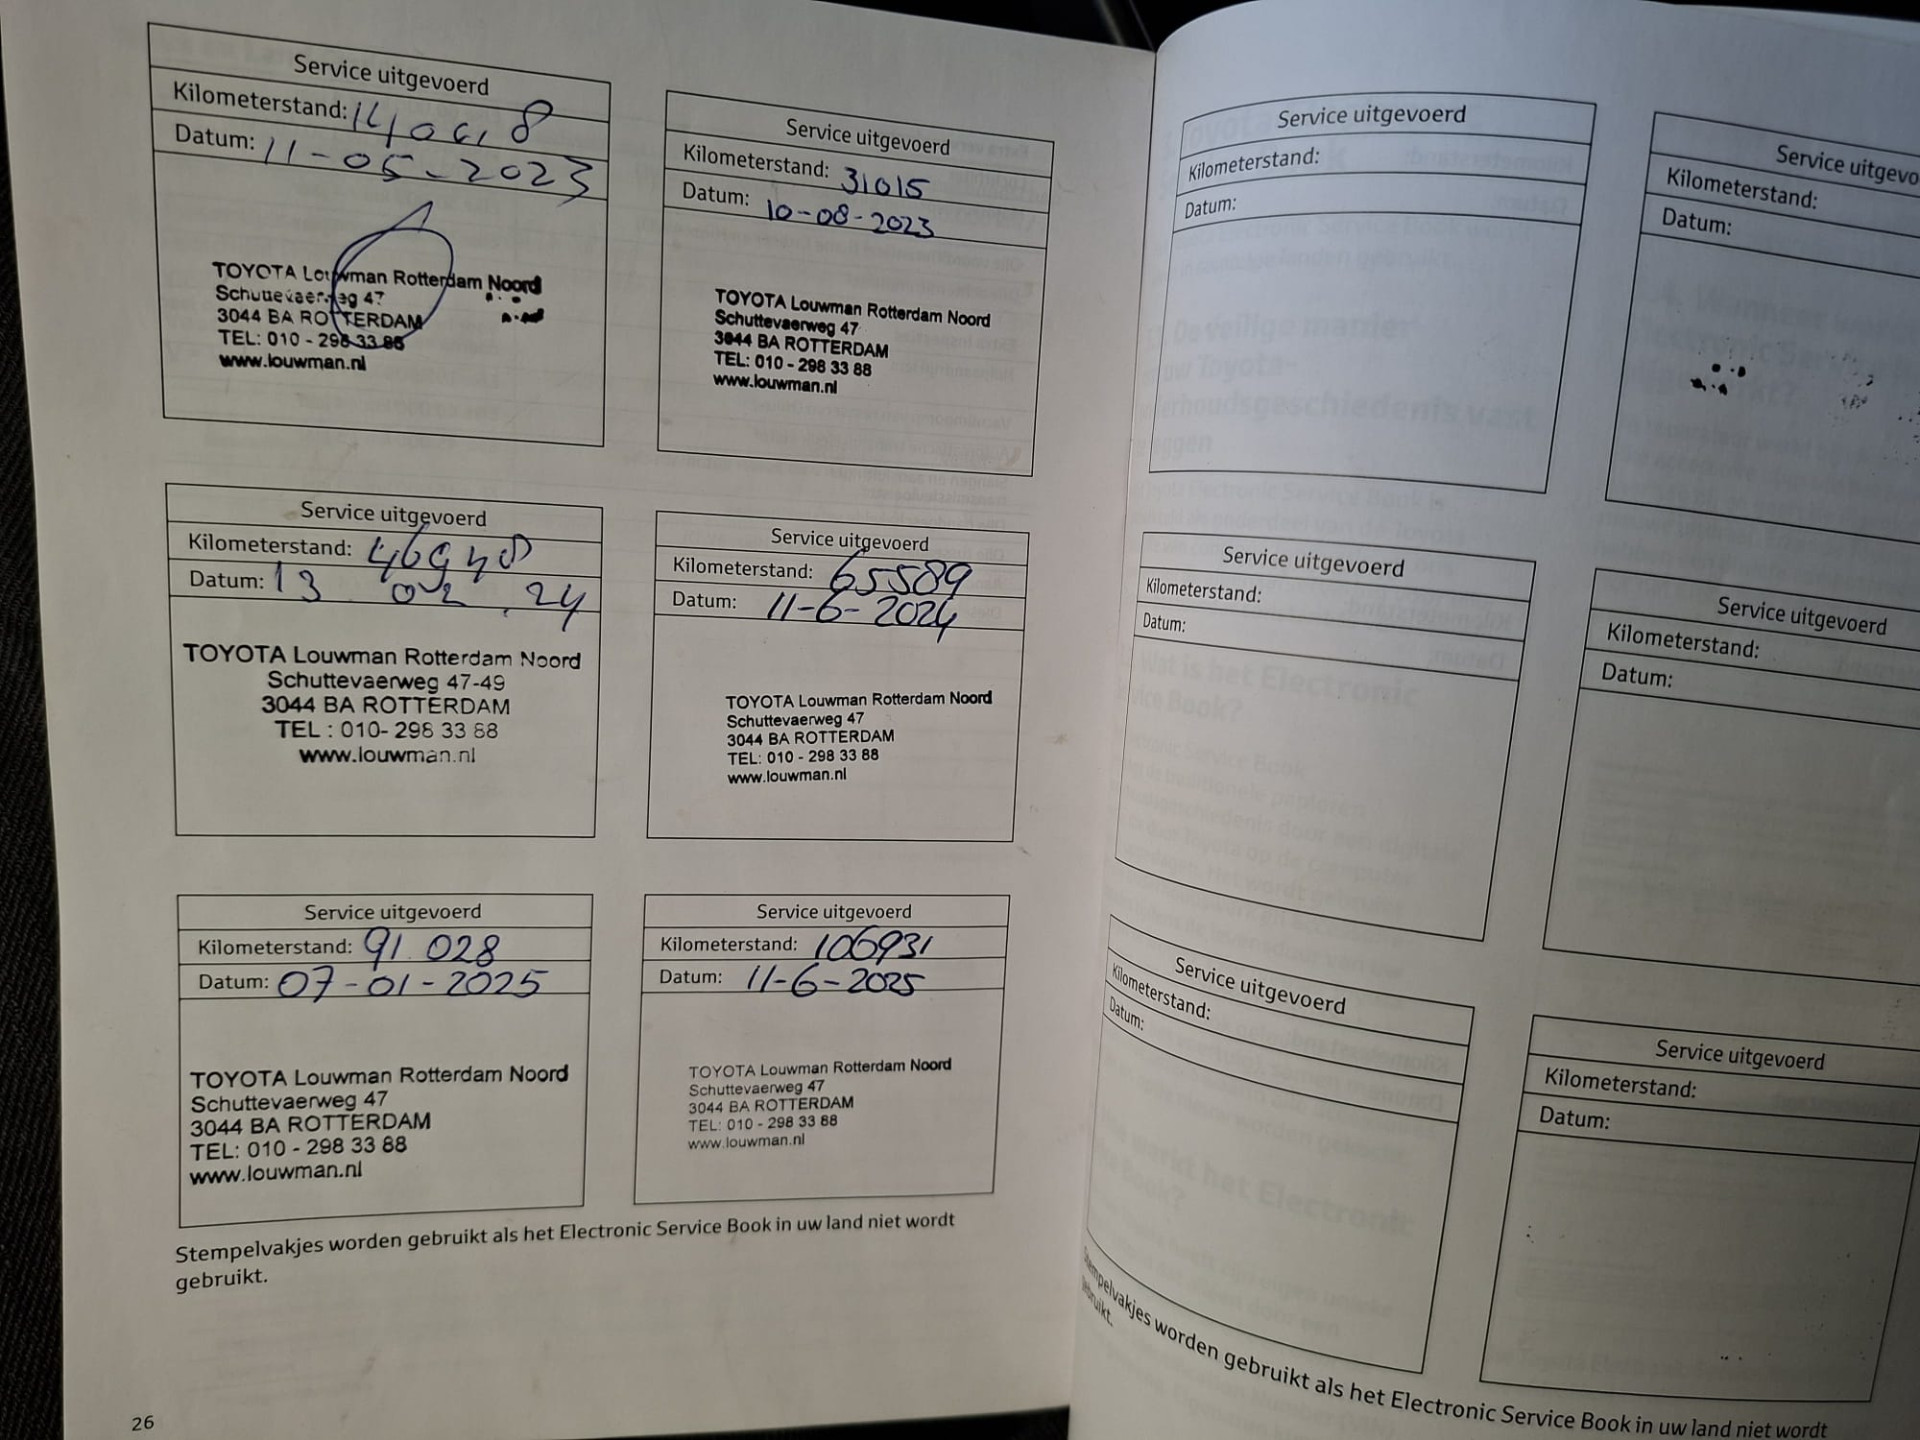 Service uitgevoerd
Kilometerstand:
Datum: 11-05-2023
TOYOTA Louwman Rotterdam Noord
Schuttevaerweg 47
3044 BA ROTTERDAM
TEL: 010 - 298 33 88
www.louwman.nl
Service uitgevoerd
Kilometerstand: 31015
Datum: 10-08-2023
TOYOTA Louwman Rotterdam Noord
Schuttevaerweg 47
3044 BA ROTTERDAM
TEL: 010 - 298 33 88
www.louwman.nl
Service uitgevoerd
Kilometerstand: 46948
Datum: 13.02.24
TOYOTA Louwman Rotterdam Noord
Schuttevaerweg 47-49
3044 BA ROTTERDAM
TEL : 010- 298 33 88
www.louwman.nl
Service uitgevoerd
Kilometerstand: 65589
Datum: 11-6-2024
TOYOTA Louwman Rotterdam Noord
Schuttevaerweg 47
3044 BA ROTTERDAM
TEL: 010 - 298 33 88
www.louwman.nl
Service uitgevoerd
Kilometerstand: 91.028
Datum: 07-01-2025
TOYOTA Louwman Rotterdam Noord
Schuttevaerweg 47
3044 BA ROTTERDAM
TEL: 010 - 298 33 88
www.louwman.nl
Service uitgevoerd
Kilometerstand: 106931
Datum: 11-6-2025
TOYOTA Louwman Rotterdam Noord
Schuttevaerweg 47
3044 BA ROTTERDAM
TEL: 010 - 298 33 88
www.louwman.nl
Stempelvakjes worden gebruikt als het Electronic Service Book in uw land niet wordt
gebruikt.
26
Service uitgevoerd
Kilometerstand:
Datum:
Service uitgevo
Kilometerstand:
Datum:
Service uitgevoerd
Kilometerstand:
Datum:
Service uitgevoerd
Kilometerstand:
Datum:
Service uitgevoerd
Kilometerstand:
Datum:
Service uitgevoerd
Kilometerstand:
Datum:
Stempelvakjes worden gebruikt als het Electronic Service Book in uw land niet wordt
gebruikt.